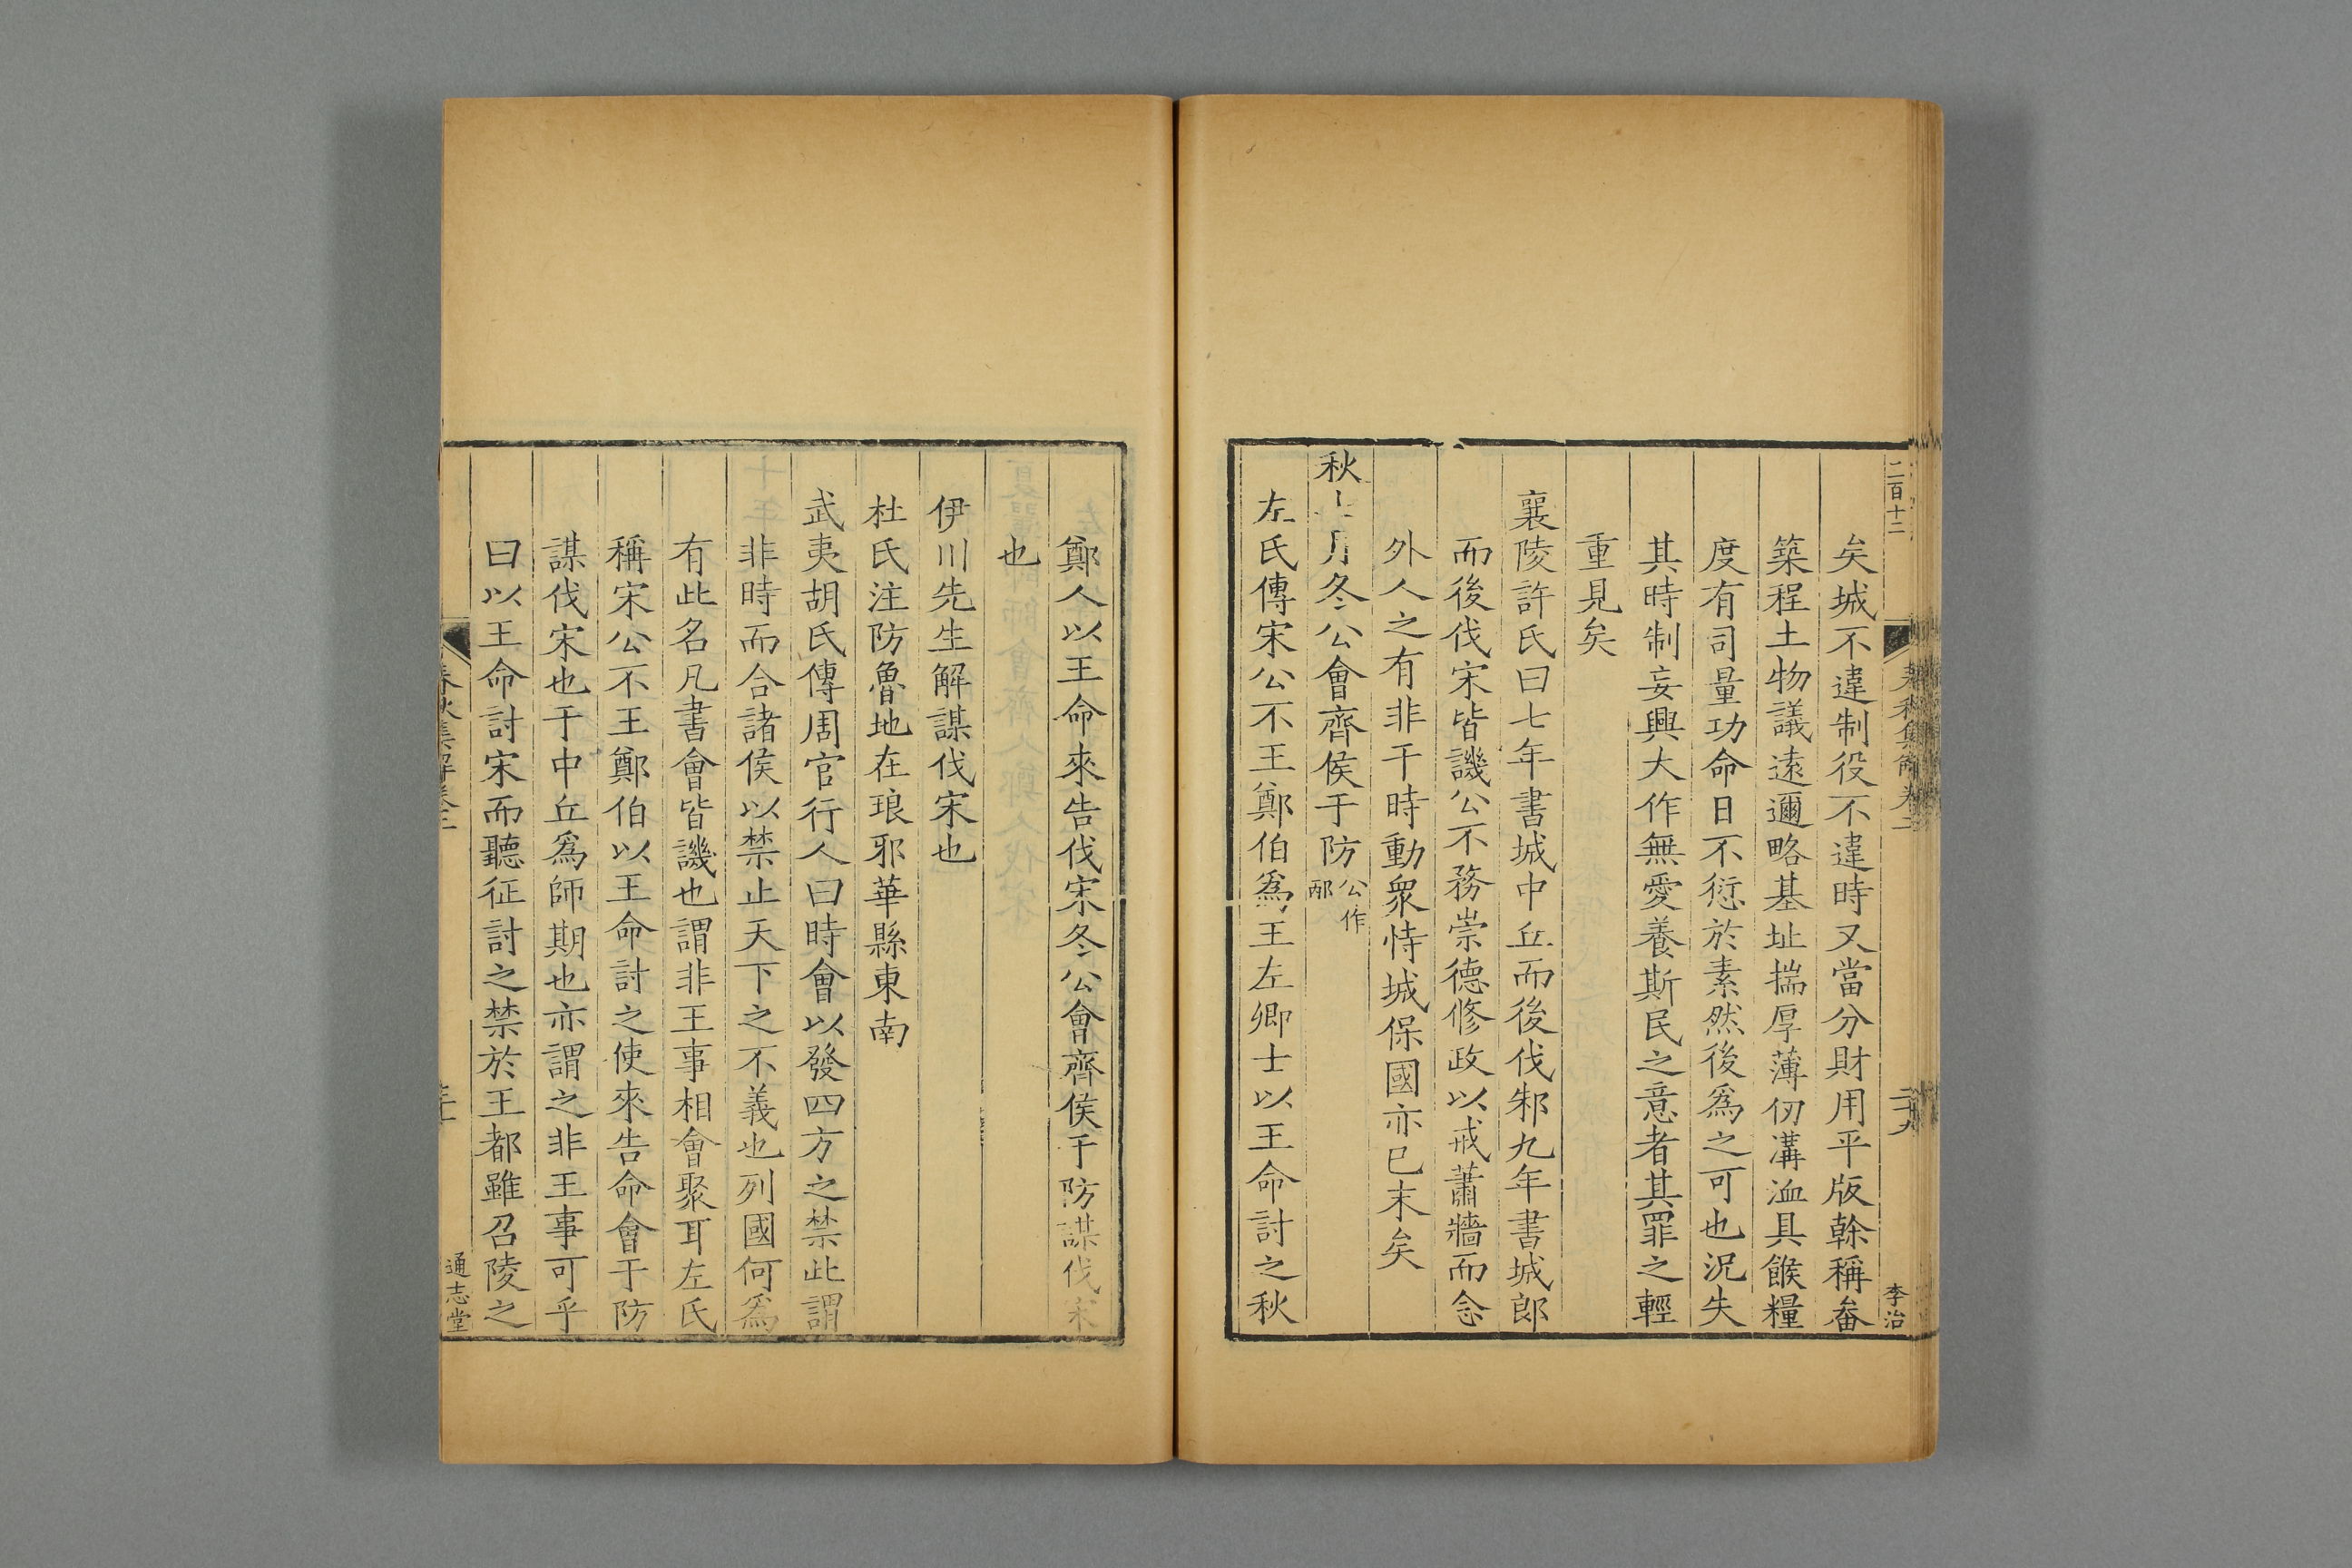 二百十二
李治
矣城不違制役不違時又當分財用平版榦稱畚
築程土物議遠邇略基址揣厚薄仞溝洫具餱糧
度有司量功命日不愆於素然後爲之可也況失
其時制妄興大作無愛養斯民之意者其罪之輕
重見矣
襄陵許氏曰七年書城中丘而後伐邾九年書城郎
而後伐宋皆譏公不務崇德修政以戒蕭牆而念
外人之有非干時動衆恃城保國亦已末矣
秋七月冬公會齊侯于防公作邴
左氏傳宋公不王鄭伯爲王左卿士以王命討之秋
鄭人以王命來告伐宋冬公會齊侯于防謀伐宋
也
伊川先生解謀伐宋也
杜氏注防魯地在琅邪華縣東南
武夷胡氏傳周官行人曰時會以發四方之禁此謂
非時而合諸侯以禁止天下之不義也列國何爲
有此名凡書會皆譏也謂非王事相會聚耳左氏
稱宋公不王鄭伯以王命討之使來告命會于防
謀伐宋也于中丘爲師期也亦謂之非王事可乎
曰以王命討宋而聽征討之禁於王都雖召陵之
春秋集解卷三
通志堂